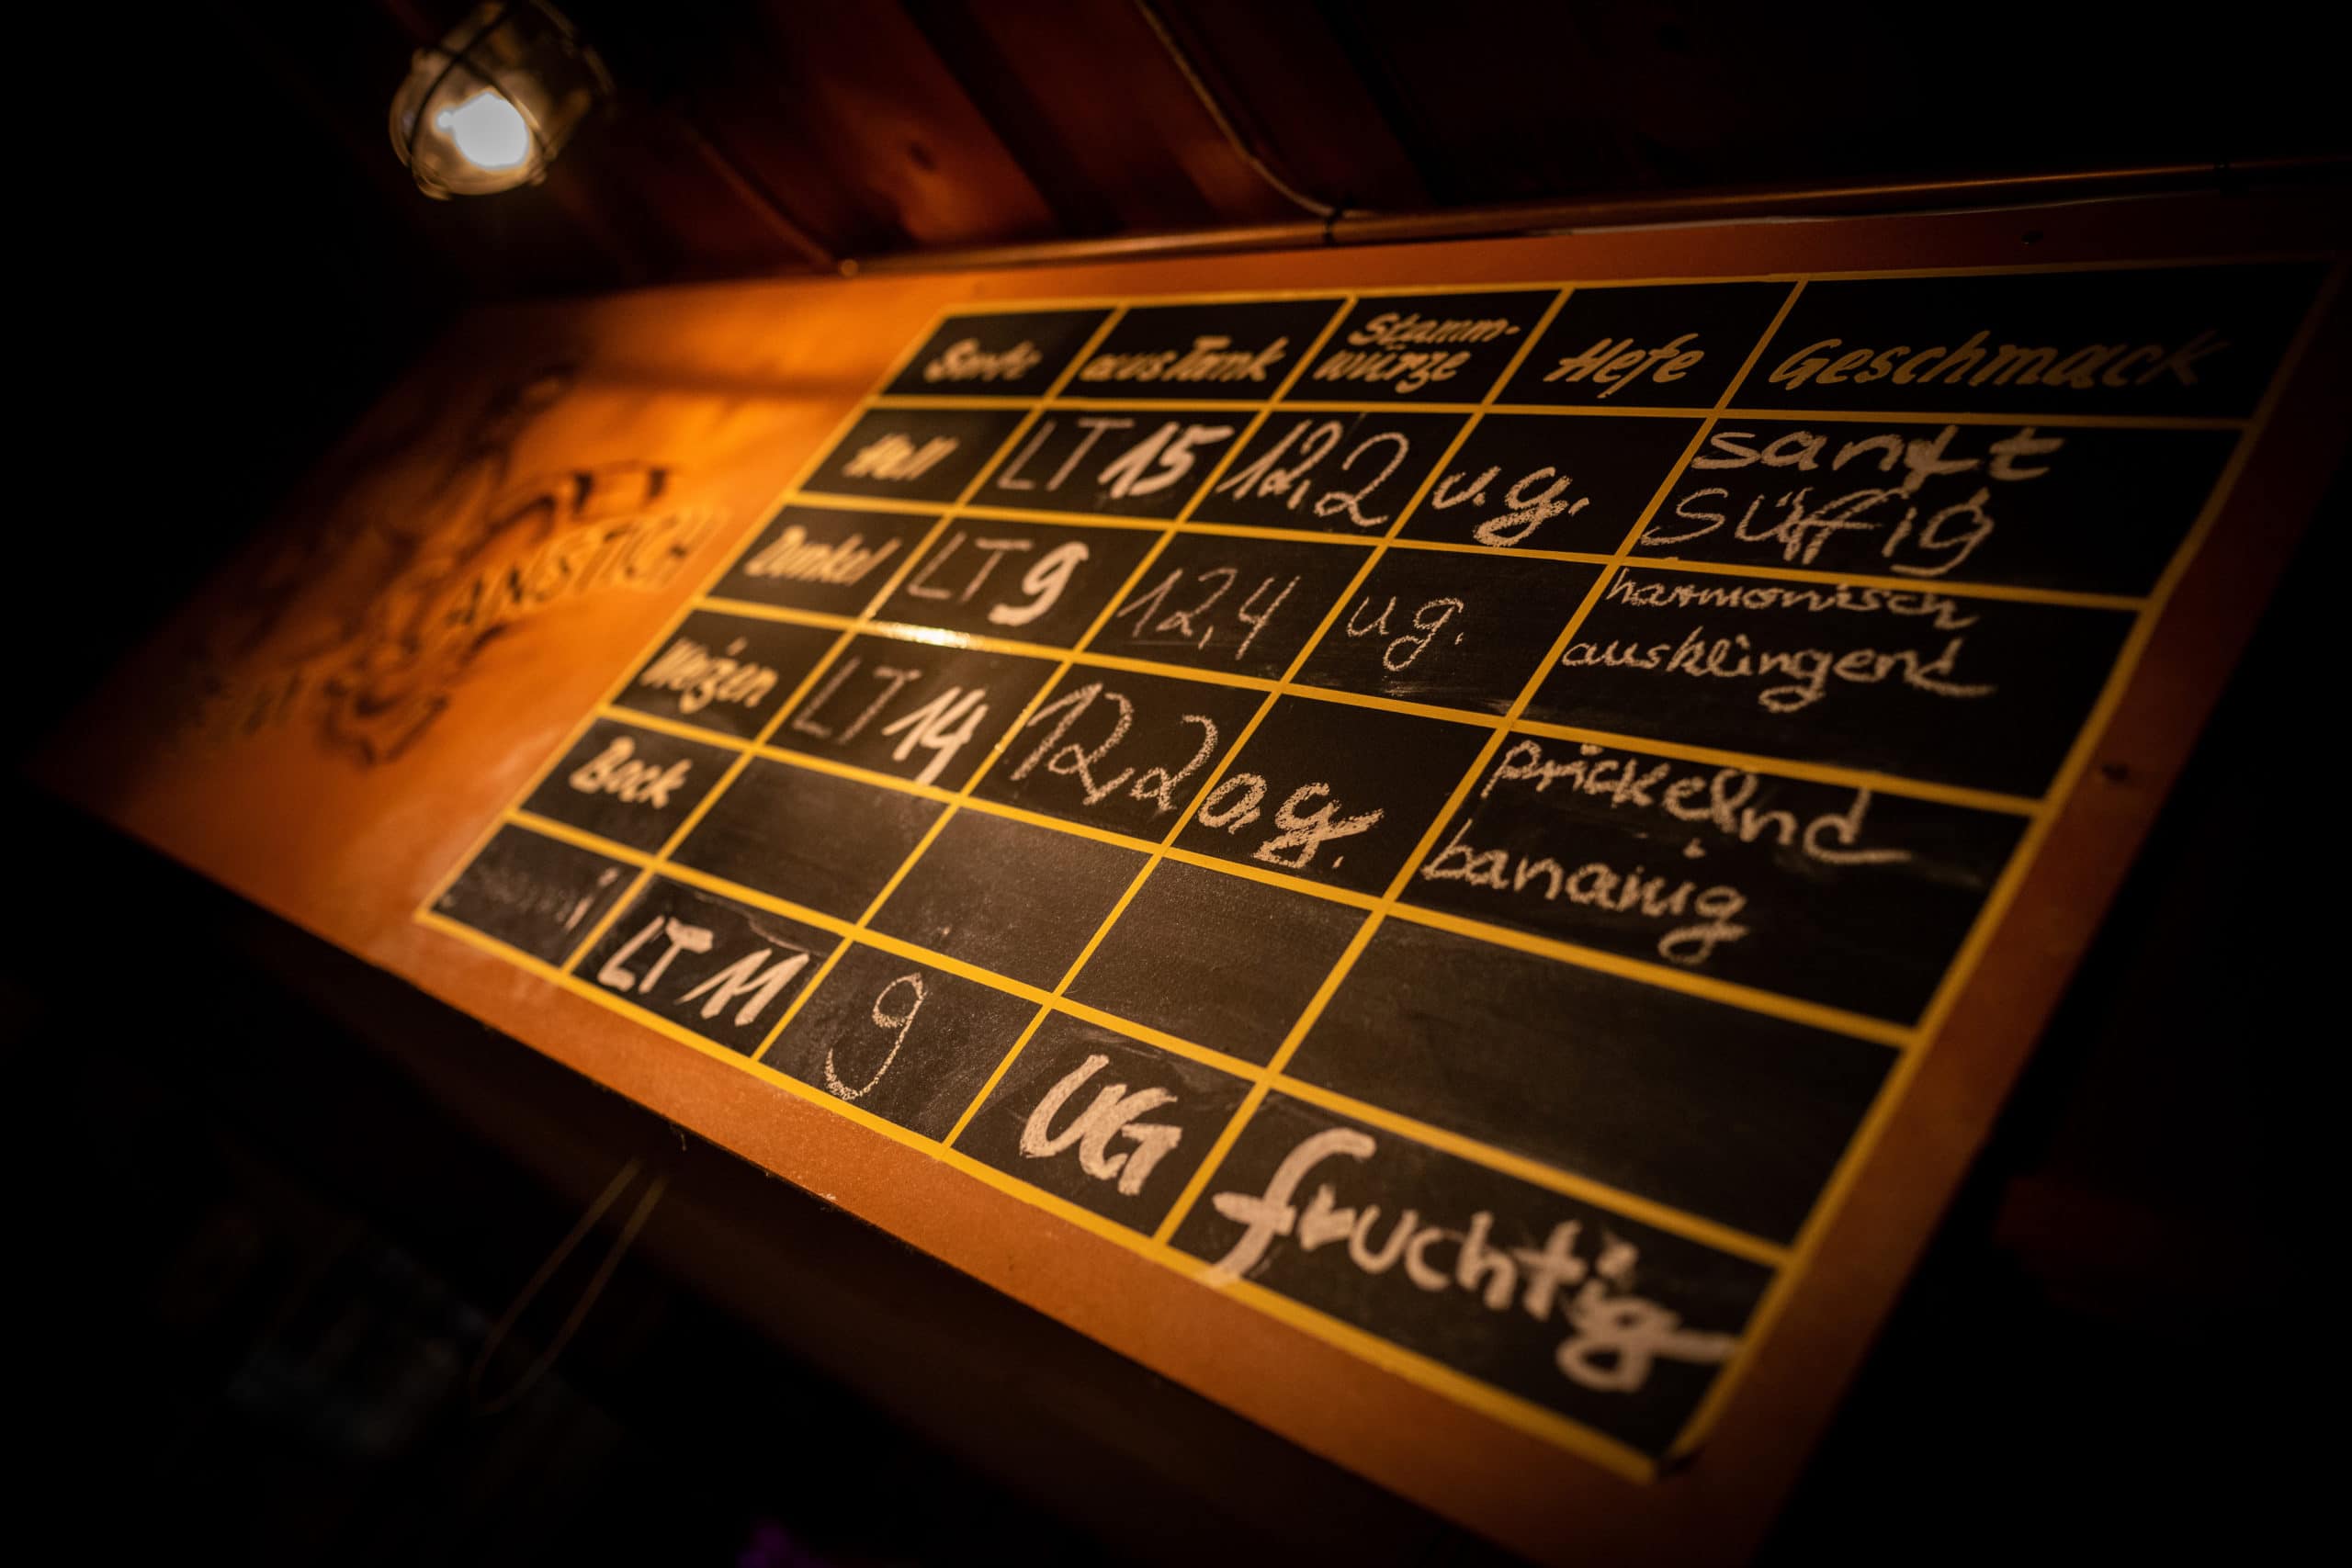 Sorte aus Tank Stamm- würze Hefe Geschmack
Hell LT 15 12,2 u.g. sanft
süffig
Dunkel LT 9 12,4 ug. harmonisch
ausklingend
Weizen LT 14 12,2 o.g. prickelnd
bananig
Bock
LT 11 9 UG fruchtig
ANSTICH